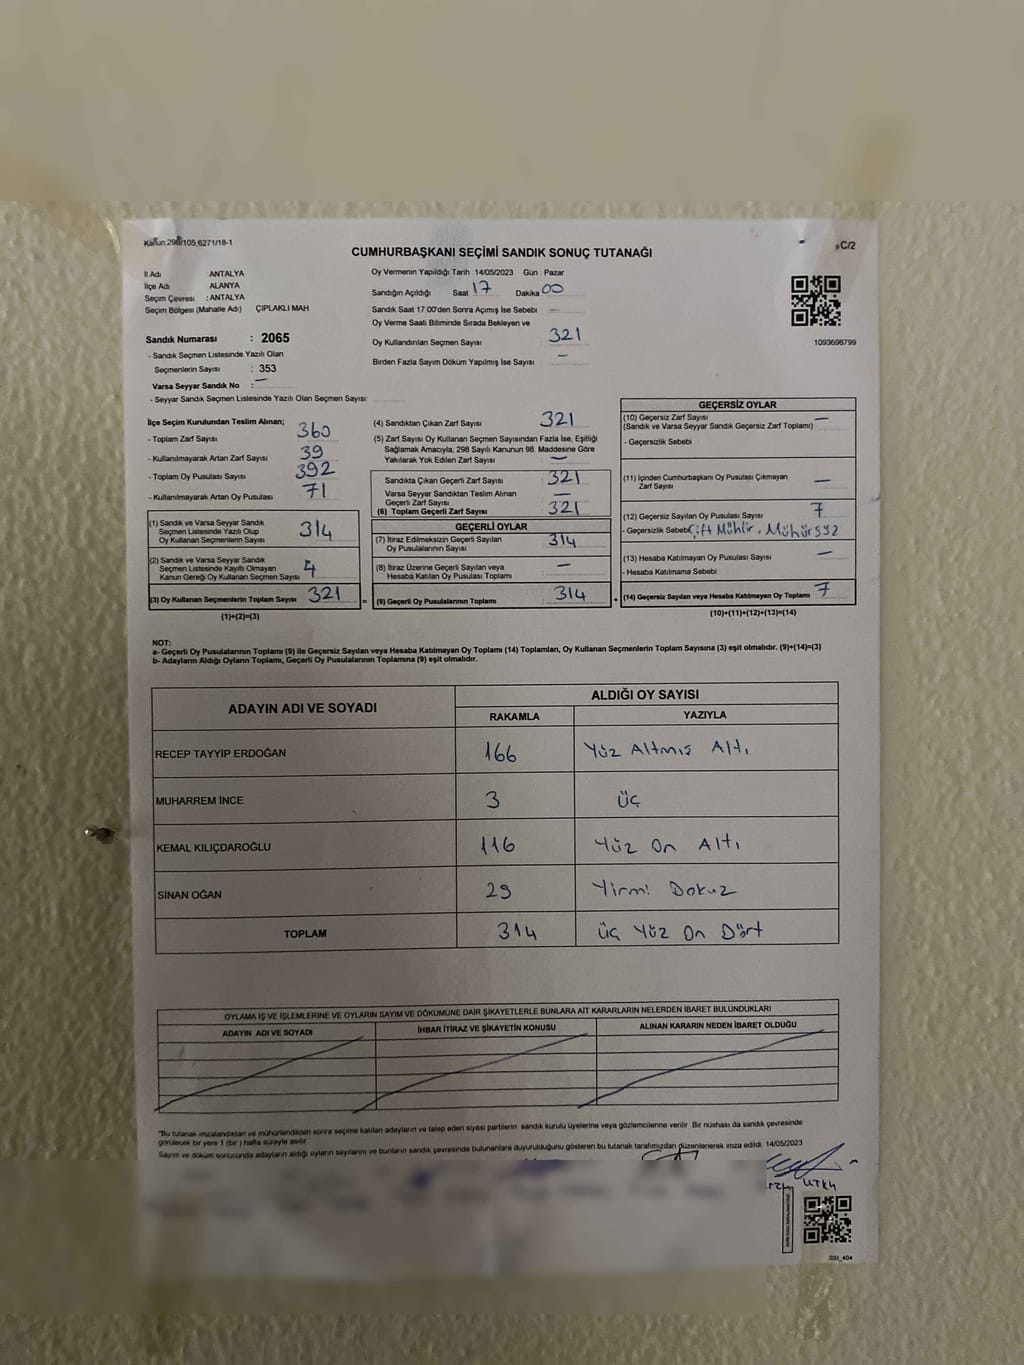 Kanun,298/105,6271/18-1
C/2
CUMHURBAŞKANI SEÇİMİ SANDIK SONUÇ TUTANAĞI
İl Adı ANTALYA
İlçe Adı ALANYA
Seçim Çevresi : ANTALYA
Seçim Bölgesi (Mahalle Adı) ÇIPLAKLI MAH
Sandık Numarası : 2065
- Sandık Seçmen Listesinde Yazılı Olan
Seçmenlerin Sayısı : 353
Varsa Seyyar Sandık No : —
- Seyyar Sandık Seçmen Listesinde Yazılı Olan Seçmen Sayısı :
Oy Vermenin Yapıldığı Tarih : 14/05/2023 Gün : Pazar
Sandığın Açıldığı Saat 17 Dakika 00
Sandık Saat 17:00'den Sonra Açımış İse Sebebi : —
Oy Verme Saati Bitiminde Sırada Bekleyen ve
Oy Kullandırılan Seçmen Sayısı 321
Birden Fazla Sayım Döküm Yapılmış İse Sayısı : —
1093698799
İlçe Seçim Kurulundan Teslim Alınan;
- Toplam Zarf Sayısı 360
- Kullanılmayarak Artan Zarf Sayısı 39
- Toplam Oy Pusulası Sayısı 392
- Kullanılmayarak Artan Oy Pusulası 71
(1) Sandık ve Varsa Seyyar Sandık
Seçmen Listesinde Yazılı Olup
Oy Kullanan Seçmenlerin Sayısı 314
(2) Sandık ve Varsa Seyyar Sandık
Seçmen Listesinde Kayıtlı Olmayan
Kanun Gereği Oy Kullanan Seçmen Sayısı 4
(3) Oy Kullanan Seçmenlerin Toplam Sayısı 321
(1)+(2)=(3)
(4) Sandıktan Çıkan Zarf Sayısı 321
(5) Zarf Sayısı Oy Kullanan Seçmen Sayısından Fazla İse, Eşitliği
Sağlamak Amacıyla, 298 Sayılı Kanunun 98. Maddesine Göre
Yakılarak Yok Edilen Zarf Sayısı —
Sandıkta Çıkan Geçerli Zarf Sayısı 321
Varsa Seyyar Sandıktan Teslim Alınan
Geçerli Zarf Sayısı —
(6) Toplam Geçerli Zarf Sayısı 321
GEÇERLİ OYLAR
(7) İtiraz Edilmeksizin Geçerli Sayılan
Oy Pusulalarının Sayısı 314
(8) İtiraz Üzerine Geçerli Sayılan veya
Hesaba Katılan Oy Pusulası Toplamı —
= (9) Geçerli Oy Pusulalarının Toplamı : 314 +
GEÇERSİZ OYLAR
(10) Geçersiz Zarf Sayısı —
(Sandık ve Varsa Seyyar Sandık Geçersiz Zarf Toplamı)
- Geçersizlik Sebebi
(11) İçinden Cumhurbaşkanı Oy Pusulası Çıkmayan
Zarf Sayısı —
(12) Geçersiz Sayılan Oy Pusulası Sayısı 7
- Geçersizlik Sebebi Çift Mühür, Mühürsüz
(13) Hesaba Katılmayan Oy Pusulası Sayısı —
- Hesaba Katılmama Sebebi
(14) Geçersiz Sayılan veya Hesaba Katılmayan Oy Toplamı 7
(10)+(11)+(12)+(13)=(14)
NOT:
a- Geçerli Oy Pusulalarının Toplamı (9) ile Geçersiz Sayılan veya Hesaba Katılmayan Oy Toplamı (14) Toplamları, Oy Kullanan Seçmenlerin Toplam Sayısına (3) eşit olmalıdır. (9)+(14)=(3)
b- Adayların Aldığı Oyların Toplamı, Geçerli Oy Pusulalarının Toplamına (9) eşit olmalıdır.
ADAYIN ADI VE SOYADI ALDIĞI OY SAYISI
RAKAMLA YAZIYLA
RECEP TAYYİP ERDOĞAN 166 Yüz Altmış Altı
MUHARREM İNCE 3 üç
KEMAL KILIÇDAROĞLU 116 Yüz On Altı
SİNAN OĞAN 29 Yirmi Dokuz
TOPLAM 314 üç Yüz On Dört
OYLAMA İŞ VE İŞLEMLERİNE VE OYLARIN SAYIM VE DÖKÜMÜNE DAİR ŞİKAYETLERLE BUNLARA AİT KARARLARIN NELERDEN İBARET BULUNDUKLARI
ADAYIN ADI VE SOYADI İHBAR İTİRAZ VE ŞİKAYETİN KONUSU ALINAN KARARIN NEDEN İBARET OLDUĞU
"Bu tutanak imzalandıktan ve mühürlendikten sonra seçime katılan adayların ve talep eden siyasi partilerin sandık kurulu üyelerine veya gözlemcilerine verilir. Bir nüshası da sandık çevresinde
görülecek bir yere 1 (bir) hafta süreyle asılır.
Sayım ve döküm sonucunda adayların aldığı oyların sayılarını ve bunların sandık çevresinde bulunanlara duyurulduğunu gösteren bu tutanak tarafımızdan düzenlenerek imza edildi. 14/05/2023
UTKU